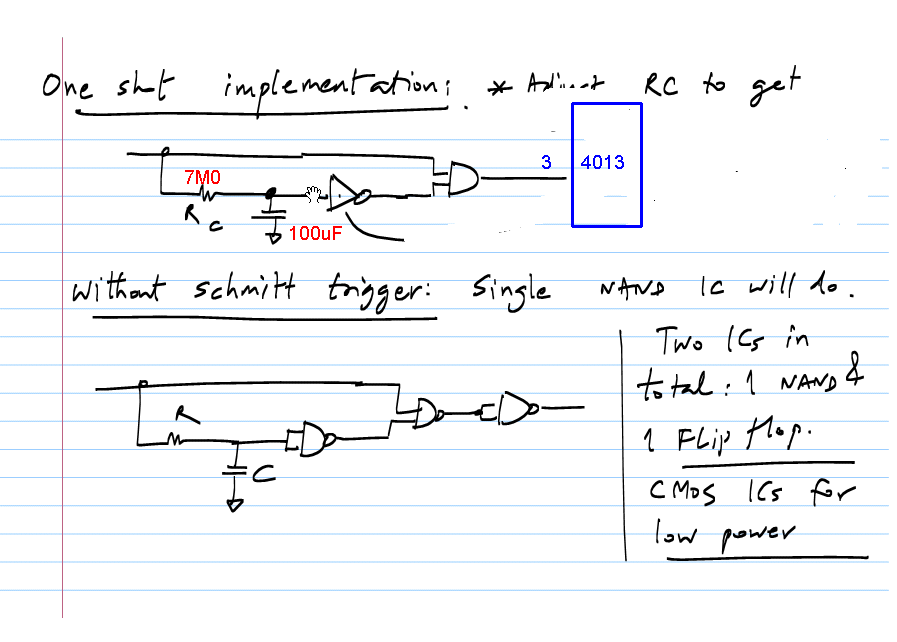 One shot implementation: * Adjust RC to get
3 4013
7M0
R C
100uF
without schmitt trigger: Single NAND IC will do.
Two ICs in
total: 1 NAND &
1 Flip flop.
CMOS ICs for
low power
R
C